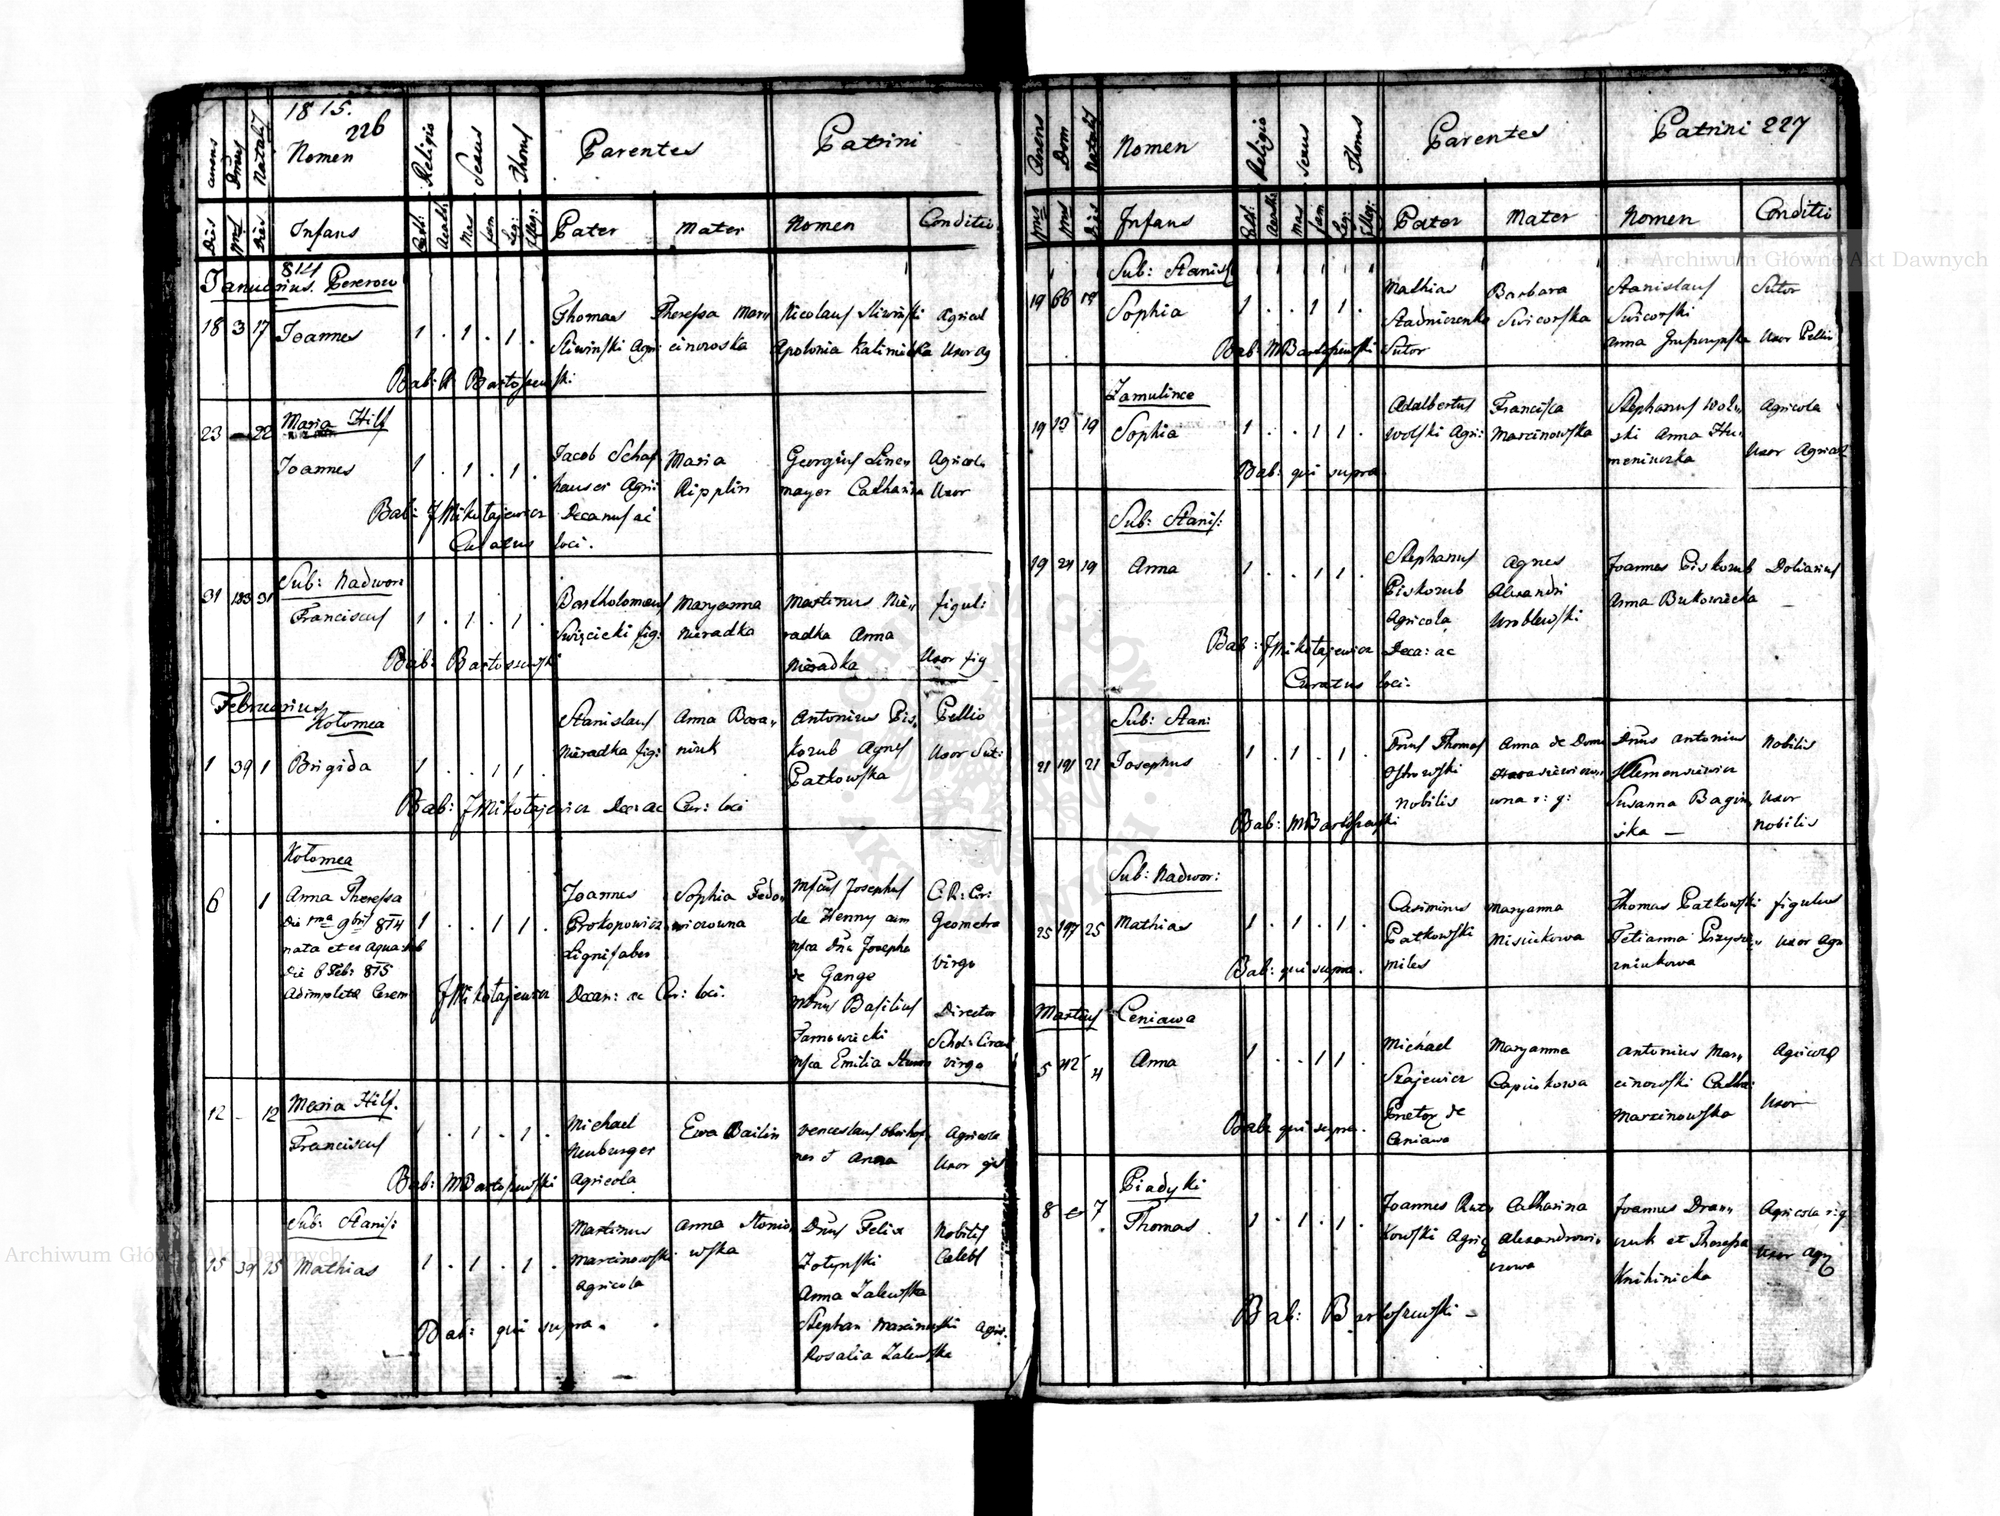 1815.
226
Nomen
Religio
Sexus
Thorus
Parentes
Patrini
Dies
Natalis
Infans
Cath:
Mas
fem
Leg:
Illeg:
Pater
Mater
Nomen
Conditio
814
Januarius. Pererow
18 3 17 Joannes 1 . 1 . 1 .
Thomas Theressa Mar„ Nicolaus Sliwinski Agricol
Sliwinski Agri: cinowska Apolonia Kalinicka Uxor Ag
Bab: Bartoszewski
23 — 22 Maria Hilf
Joannes 1 . 1 . 1 .
Jacob Schaf Maria Georgius Linen Agricola
hauser Agri: Ripplin mayer Catharina Uxor
Bab: J Mikołajewicz Decanus ac
Curatus loci.
31 133 31 Sub: Nadwor:
Franciscus 1 . 1 . 1 .
Bartholomeus Maryanna Martinus Nie„ figul:
Swięcicki fig: Nieradka radka Anna
Nieradka Uxor fig
Bab: Bartoszewski
Februarius
Kołomea
1 39 1 Brigida 1 . . 1 1 .
Stanislaus Anna Bara„ Antonius Pis„ Pellio
Nieradka fig: niuk korub Agnes Uxor Sut:
Patkowska
Bab: J Mikołajewicz Dec: ac Cur: loci
Kołomea
6 1 Anna Theressa
Die 1ma 9bris 814 1 . . 1 1 .
nata et ex aqua
Die 6 Feb: 815
adimpleta Cerem
Joannes Sophia Fedo„ Josephus C: R: Cir:
Prokopowicz wiczowna de Henny cum Geometra
Lignifaber Dna Josepha
de Gange Virgo
J Mikołajewicz Decan: ac Cur: loci.
Basilius Director
Tarnowiecki Schol:
Emilia virgo
12 - 12 Maria Hilf.
Franciscus 1 . 1 . 1 .
Michael Ewa Bailin Venceslaus Agricola
Neuburger ner et Anna Uxor
Agricola
Bab: M Bartoszewski
15 39 15 Sub: Stanis:
Mathias 1 . 1 . 1 .
Martinus Anna Dnus Felix Nobilis
Marcinowski wska Celebs
Agricola
Anna Zalewska
Stephan Marcinowski Agri:
Rosalia Zalewska
Bab: qui supra.
Nomen
Religio
Sexus
Thorus
Parentes
Patrini 227
Infans
Cath:
mas
fem
Leg:
Illeg:
Pater
Mater
Nomen
Conditio
Sub: Stanis
19 66 18 Sophia 1 . . 1 1
Mathias Barbara Stanislaus Sutor
Stadniczenko Swicorska Swicorski
Sutor Anna Uxor Pellio
Bab: M Bartoszewski
Zamulince
19 13 19 Sophia 1 . . 1 1 .
Adalbertus Francisca Stephanus Wol„ Agricola
Wolski Agri: Marcinowska ski Anna Hu„
meniuczka Uxor Agricol
Bab: qui supra
Sub: Stanis:
19 24 19 Anna 1 . . 1 1 .
Stephanus Agnes Joannes Piskorub Doliarius
Piskorub Alexandri Anna Bukowiecka —
Agricola Wroblewski
Bab: J Mikołajewicz Deca: ac
Curatus loci.
Sub: Stan:
21 191 21 Josephus 1 . 1 . 1 .
Dnus Thomas Anna de Domo Dnus Antonius Nobilis
Ostrowski Klemensiewicz
Nobilis Susanna Bagin„ Uxor
ska — Nobilis
Bab: M Bartoszewski
Sub: Nadwor:
25 197 25 Mathias 1 . 1 . 1 .
Casimirus Maryanna Thomas Patkowski figulus
Patkowski Misiukowa Tetianna Uxor Agr
miles
Bab: qui supra.
Martius Ceniawa
5 42 4 Anna 1 . . 1 1 .
Michael Maryanna Antonius Mar„ Agricola
Szajewicz Capiukowa cinowski Cath:
Praetor de Marcinowska Uxor
Ceniawa
Bab: qui supra.
Piadyki
8 7 Thomas 1 . 1 . 1 .
Joannes Rut„ Catharina Joannes Dran„ Agricola
kowski Agri Alexandrowi„ czuk et Theressa Uxor Agr
czowa Knihinicka
Bab: Bartoszewski —
Archiwum Główne Akt Dawnych
Archiwum Główne Akt Dawnych